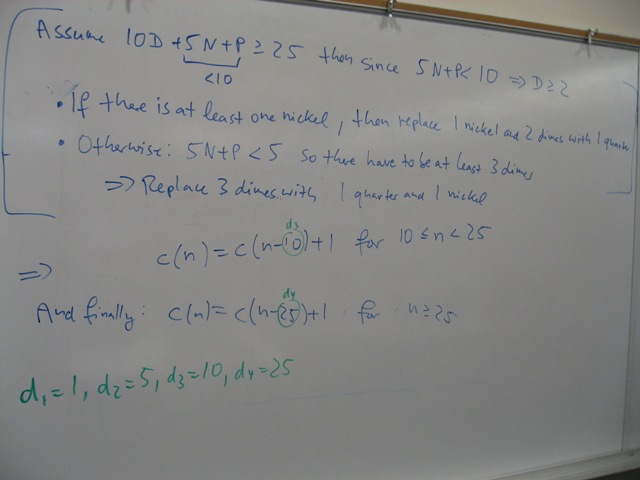 Assume 10D + 5N + P ≥ 25 then since 5N+P < 10 ⇒ D ≥ 2
<10
• If there is at least one nickel, then replace 1 nickel and 2 dimes with 1 quarter
• Otherwise: 5N+P < 5 so there have to be at least 3 dimes
⇒ Replace 3 dimes with 1 quarter and 1 nickel
d3
c(n) = c(n-10)+1 for 10 ≤ n < 25
⇒
d4
And finally: c(n) = c(n-25)+1 for n ≥ 25
d1 = 1, d2 = 5, d3 = 10, d4 = 25